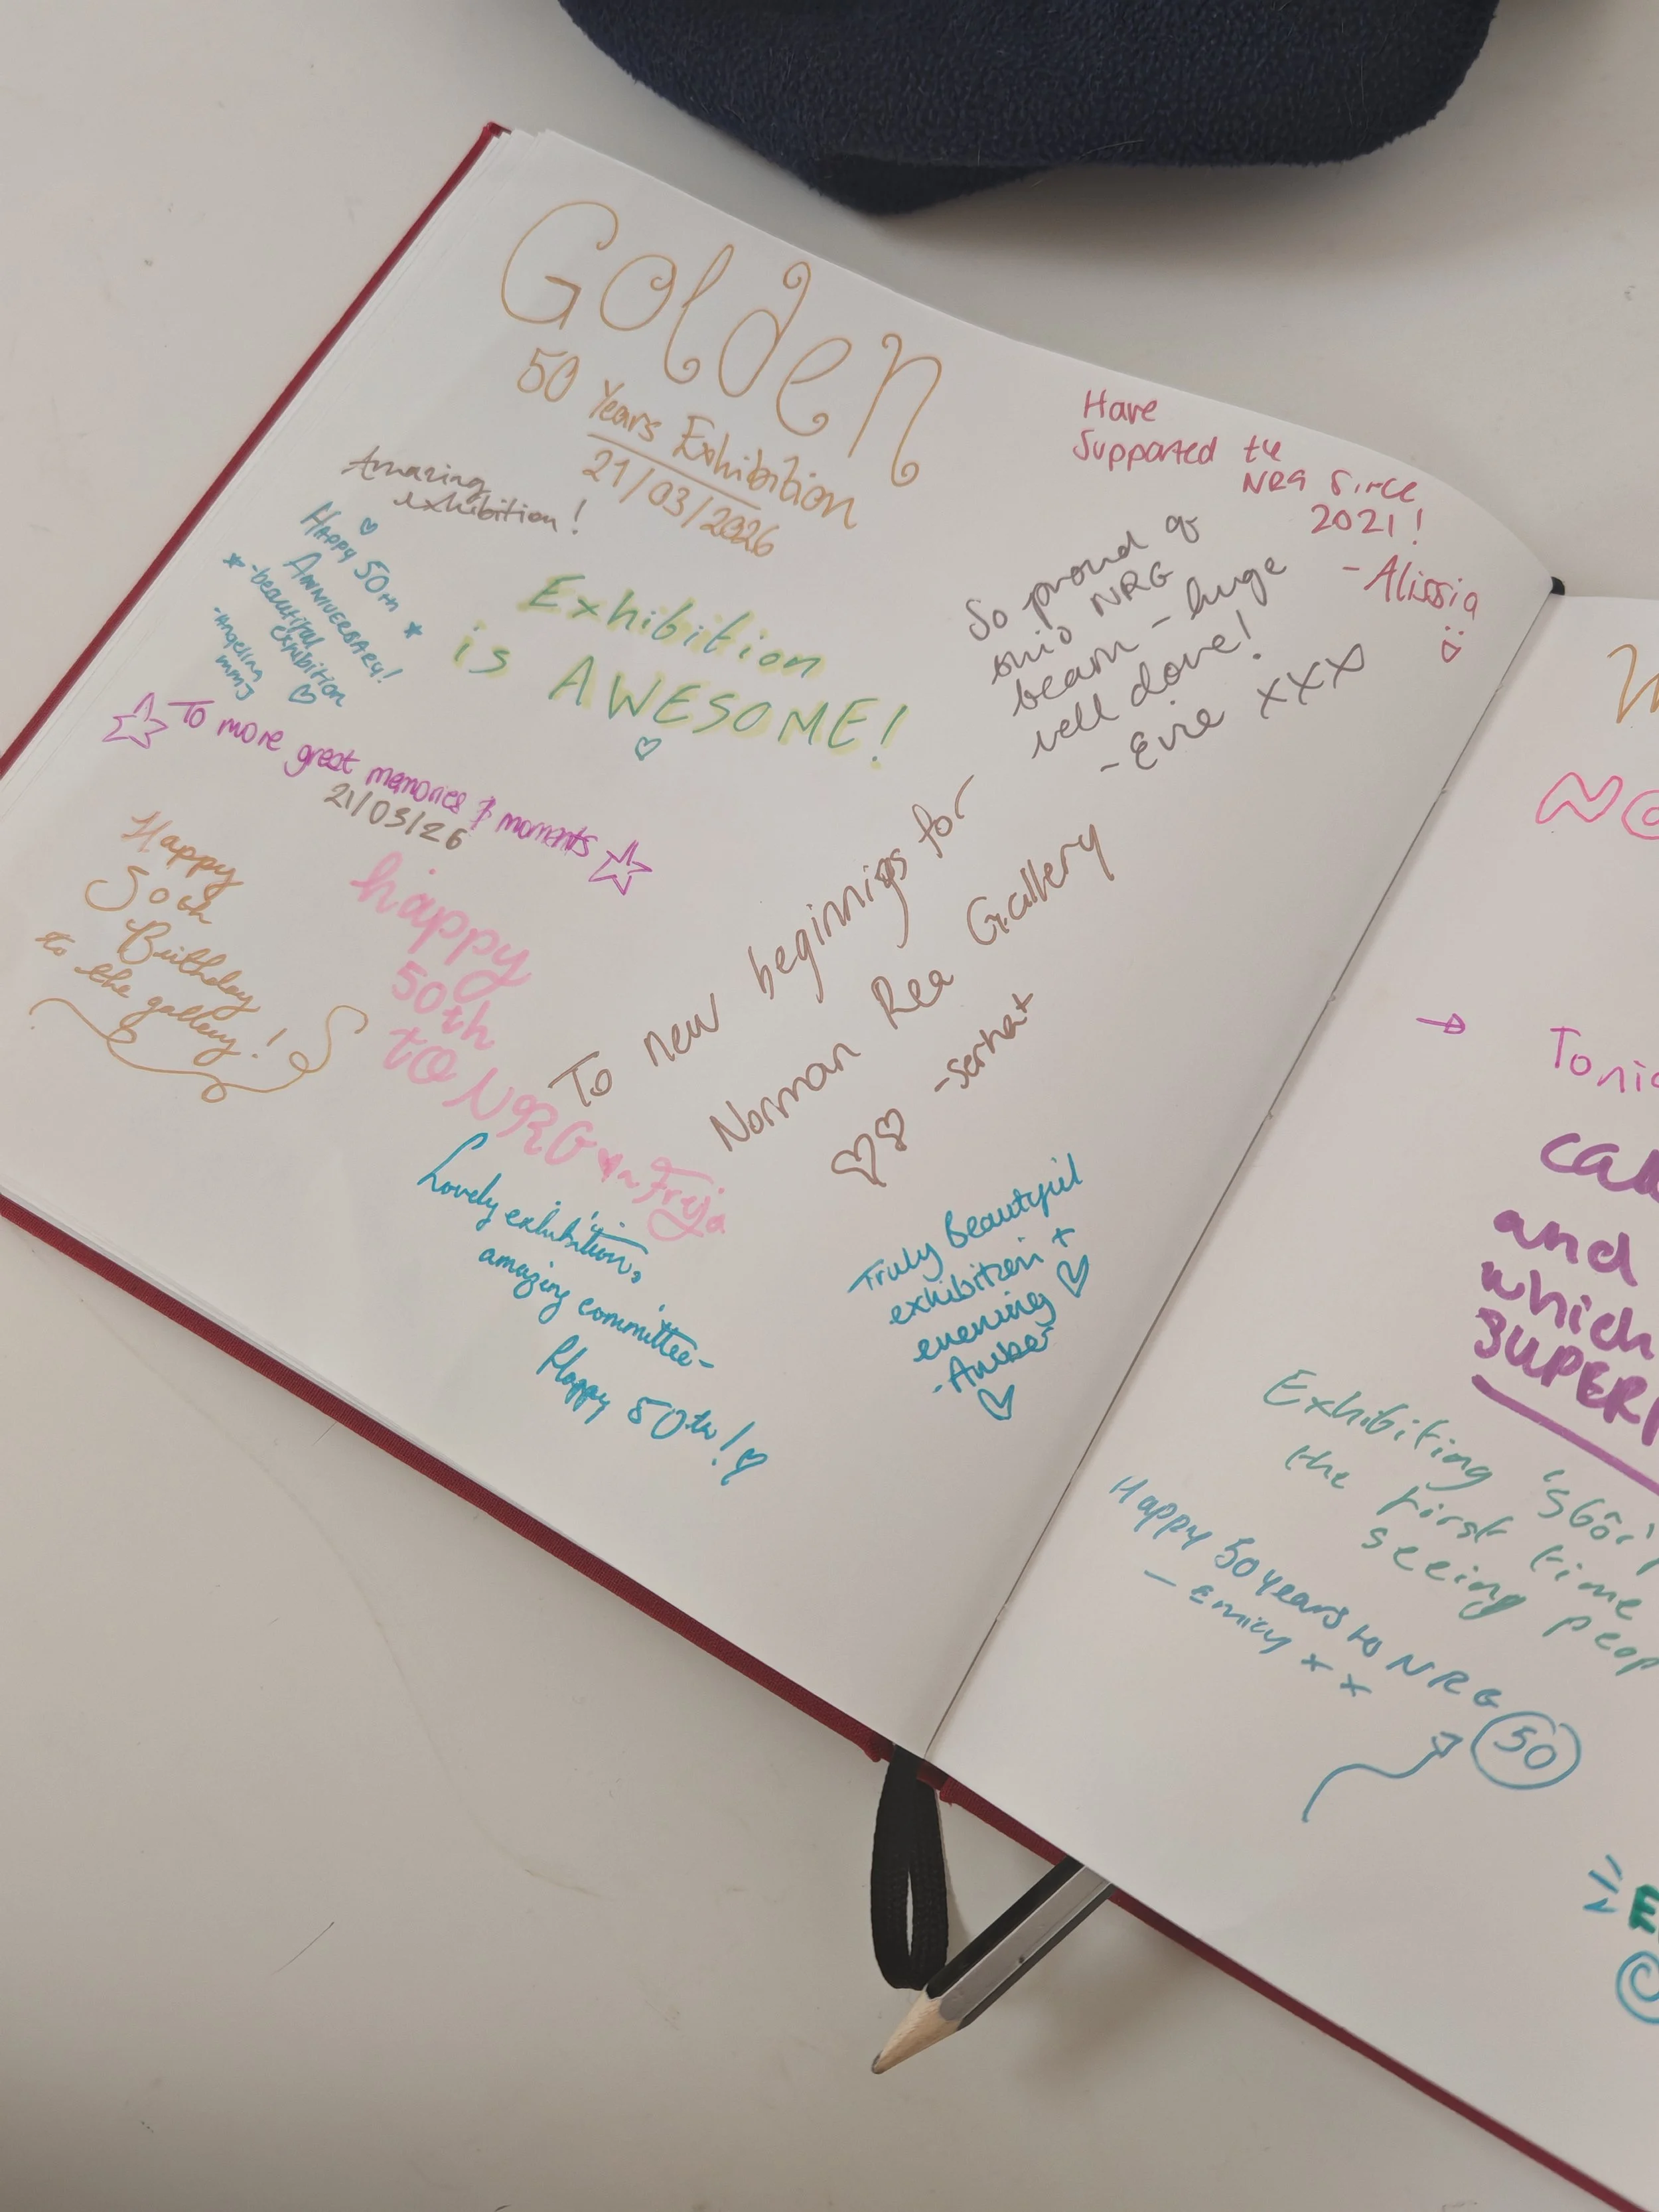 Golden
50 Years Exhibition
21/03/2026
Have
Supported the
NRG Since
2021!
-Alissia
Amazing
exhibition!
Happy 50th
Anniversary!
-beautiful
exhibition
-Angelina
Exhibition
is AWESOME!
So proud of
NRG
beam - huge
well done!
-Evie xxx
To more great memories & moments
21/03/26
Happy
50th
Birthday
to the gallery!
happy
50th
to NRG
~Freja
To new beginnigs for
Norman Rea Gallery
-Serhat
Lovely exhibition,
amazing committee-
Happy 50th!
Truly Beautiful
exhibition +
evening
-Amber
NO
→
Toni
and
which
SUPER
Exhibiting
the first time
seeing peop
Happy 50 years to NRG
- Emily xx
50